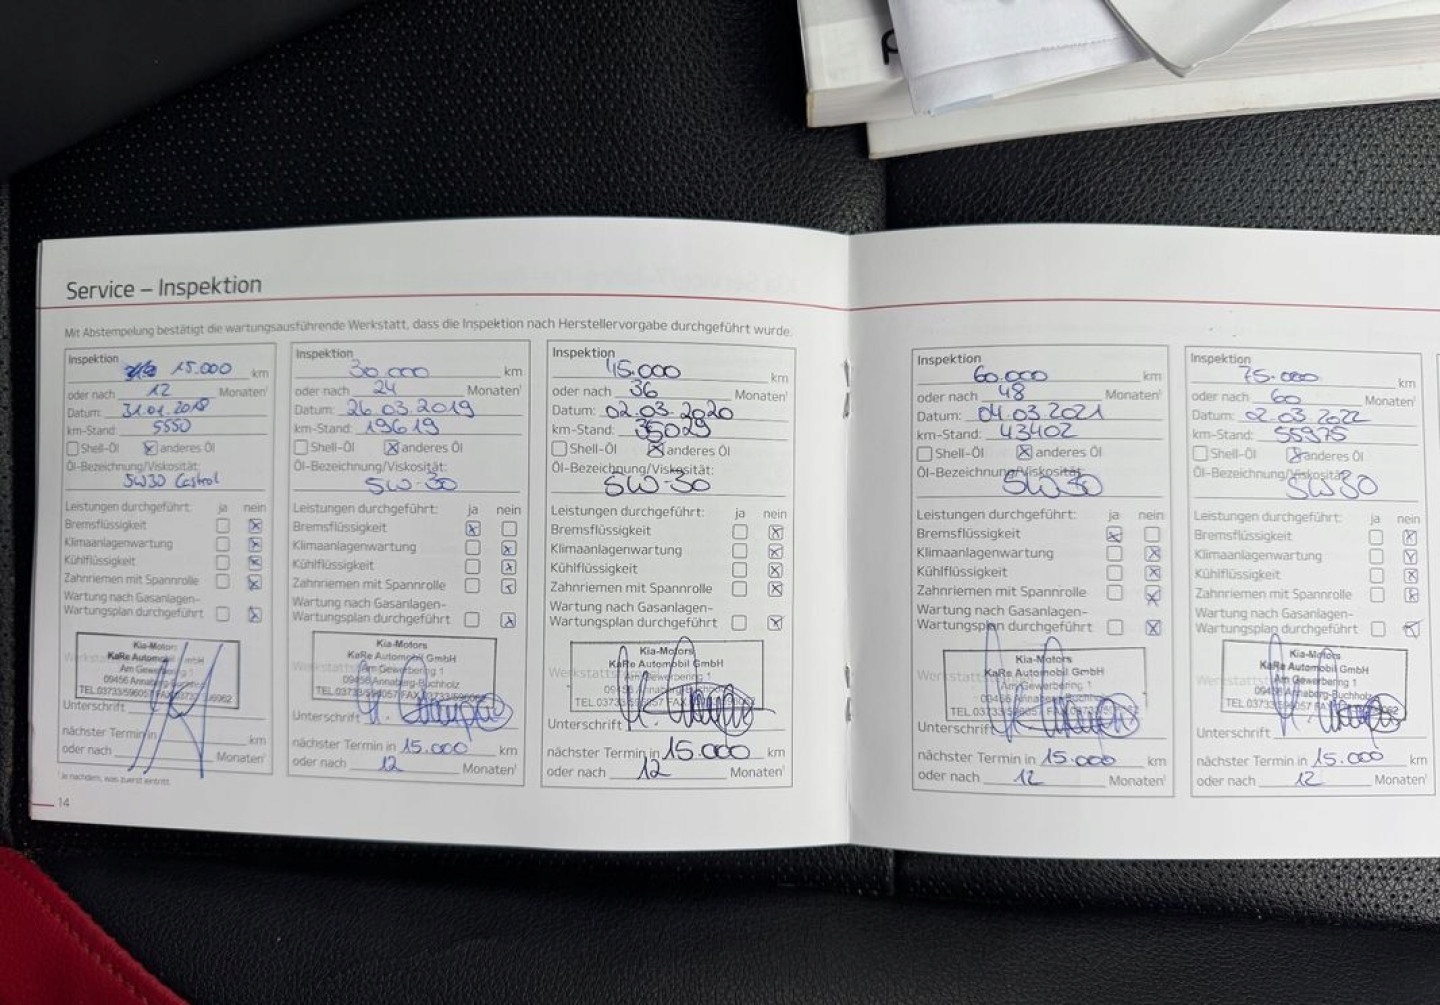 Service – Inspektion
Mit Abstempelung bestätigt die wartungsausführende Werkstatt, dass die Inspektion nach Herstellervorgabe durchgeführt wurde.
Inspektion
15.000 km
oder nach 12 Monaten¹
Datum: 31.01.2018
km-Stand: 5550
Shell-Öl anderes Öl
Öl-Bezeichnung/Viskosität:
5W30 Castrol
Leistungen durchgeführt: ja nein
Bremsflüssigkeit
Klimaanlagenwartung
Kühlflüssigkeit
Zahnriemen mit Spannrolle
Wartung nach Gasanlagen-
Wartungsplan durchgeführt
Kia-Motors
KaRe Automobil GmbH
Am Gewerbering 1
09456 Annaberg-Buchholz
TEL.03733/596057 FAX
Unterschrift
nächster Termin in km
oder nach Monaten¹
¹Je nachdem, was zuerst eintritt.
14
Inspektion
30.000 km
oder nach 24 Monaten¹
Datum: 26.03.2019
km-Stand: 19619
Shell-Öl anderes Öl
Öl-Bezeichnung/Viskosität:
5W-30
Leistungen durchgeführt: ja nein
Bremsflüssigkeit
Klimaanlagenwartung
Kühlflüssigkeit
Zahnriemen mit Spannrolle
Wartung nach Gasanlagen-
Wartungsplan durchgeführt
Kia-Motors
KaRe Automobil GmbH
Am Gewerbering 1
09456 Annaberg-Buchholz
TEL.03733/596057 FAX
Unterschrift
nächster Termin in 15.000 km
oder nach 12 Monaten¹
Inspektion
45.000 km
oder nach 36 Monaten¹
Datum: 02.03.2020
km-Stand: 35029
Shell-Öl anderes Öl
Öl-Bezeichnung/Viskosität:
5W-30
Leistungen durchgeführt: ja nein
Bremsflüssigkeit
Klimaanlagenwartung
Kühlflüssigkeit
Zahnriemen mit Spannrolle
Wartung nach Gasanlagen-
Wartungsplan durchgeführt
Kia-Motors
KaRe Automobil GmbH
Am Gewerbering 1
09456 Annaberg-Buchholz
Unterschrift
nächster Termin in 15.000 km
oder nach 12 Monaten¹
Inspektion
60.000 km
oder nach 48 Monaten¹
Datum: 04.03.2021
km-Stand: 43402
Shell-Öl anderes Öl
Öl-Bezeichnung/Viskosität:
5W30
Leistungen durchgeführt: ja nein
Bremsflüssigkeit
Klimaanlagenwartung
Kühlflüssigkeit
Zahnriemen mit Spannrolle
Wartung nach Gasanlagen-
Wartungsplan durchgeführt
Kia-Motors
KaRe Automobil GmbH
Am Gewerbering 1
09456 Annaberg-Buchholz
Unterschrift
nächster Termin in 15.000 km
oder nach 12 Monaten¹
Inspektion
75.000 km
oder nach 60 Monaten¹
Datum: 02.03.2022
km-Stand: 55975
Shell-Öl anderes Öl
Öl-Bezeichnung/Viskosität:
5W30
Leistungen durchgeführt: ja nein
Bremsflüssigkeit
Klimaanlagenwartung
Kühlflüssigkeit
Zahnriemen mit Spannrolle
Wartung nach Gasanlagen-
Wartungsplan durchgeführt
Kia-Motors
KaRe Automobil GmbH
Am Gewerbering 1
09456 Annaberg-Buchholz
Unterschrift
nächster Termin in 15.000 km
oder nach 12 Monaten¹